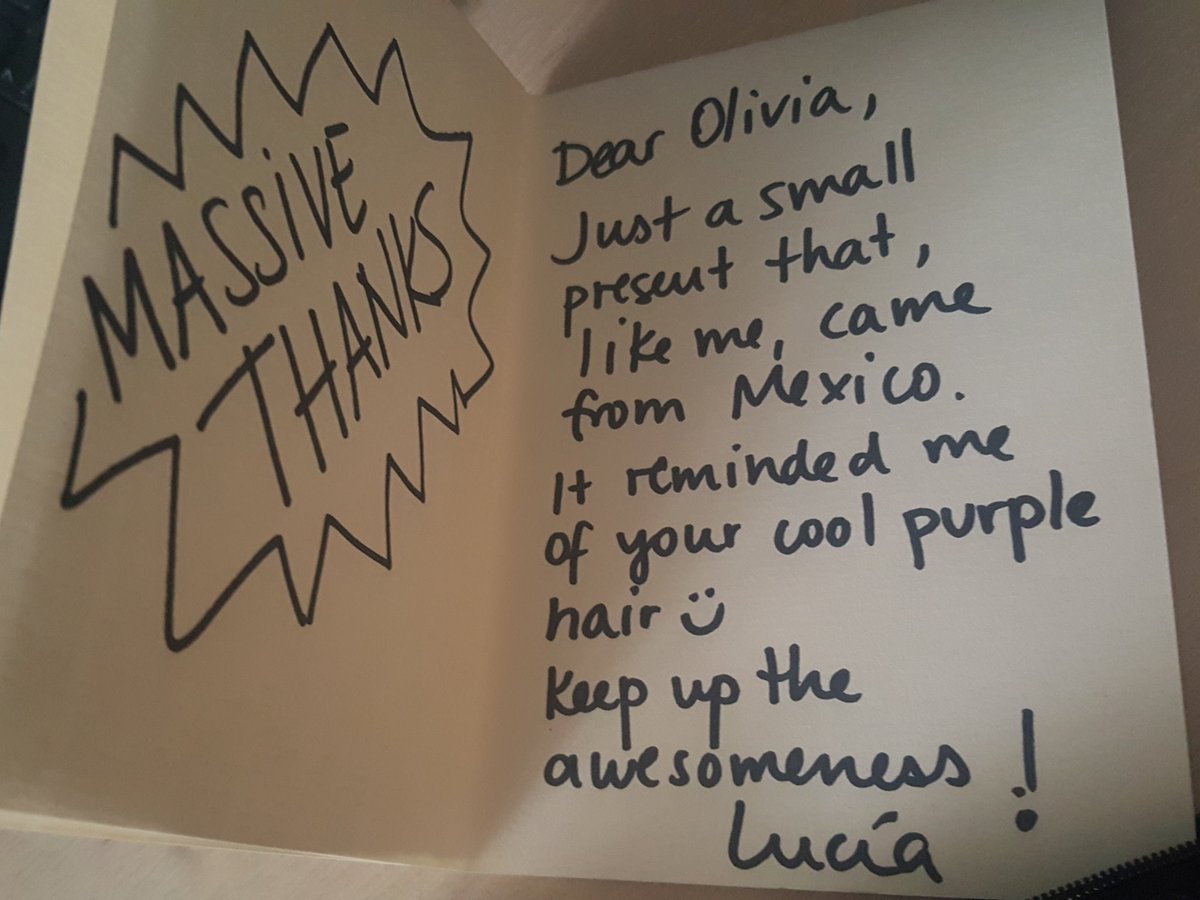 MASSIVE
THANKS
Dear Olivia,
Just a small
present that,
like me, came
from Mexico.
It reminded me
of your cool purple
hair ☺
Keep up the
awesomeness!
Lucía